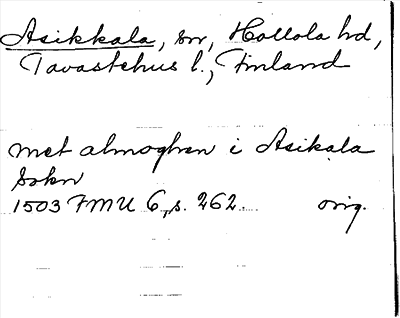 Asikkala, sn, Hollola hd,
Tavastehus l., Finland
met almoghen i Asikala
sokn
1503 FMU 6, s. 262. orig.